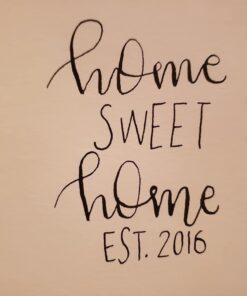 home
SWEET
home
EST. 2016